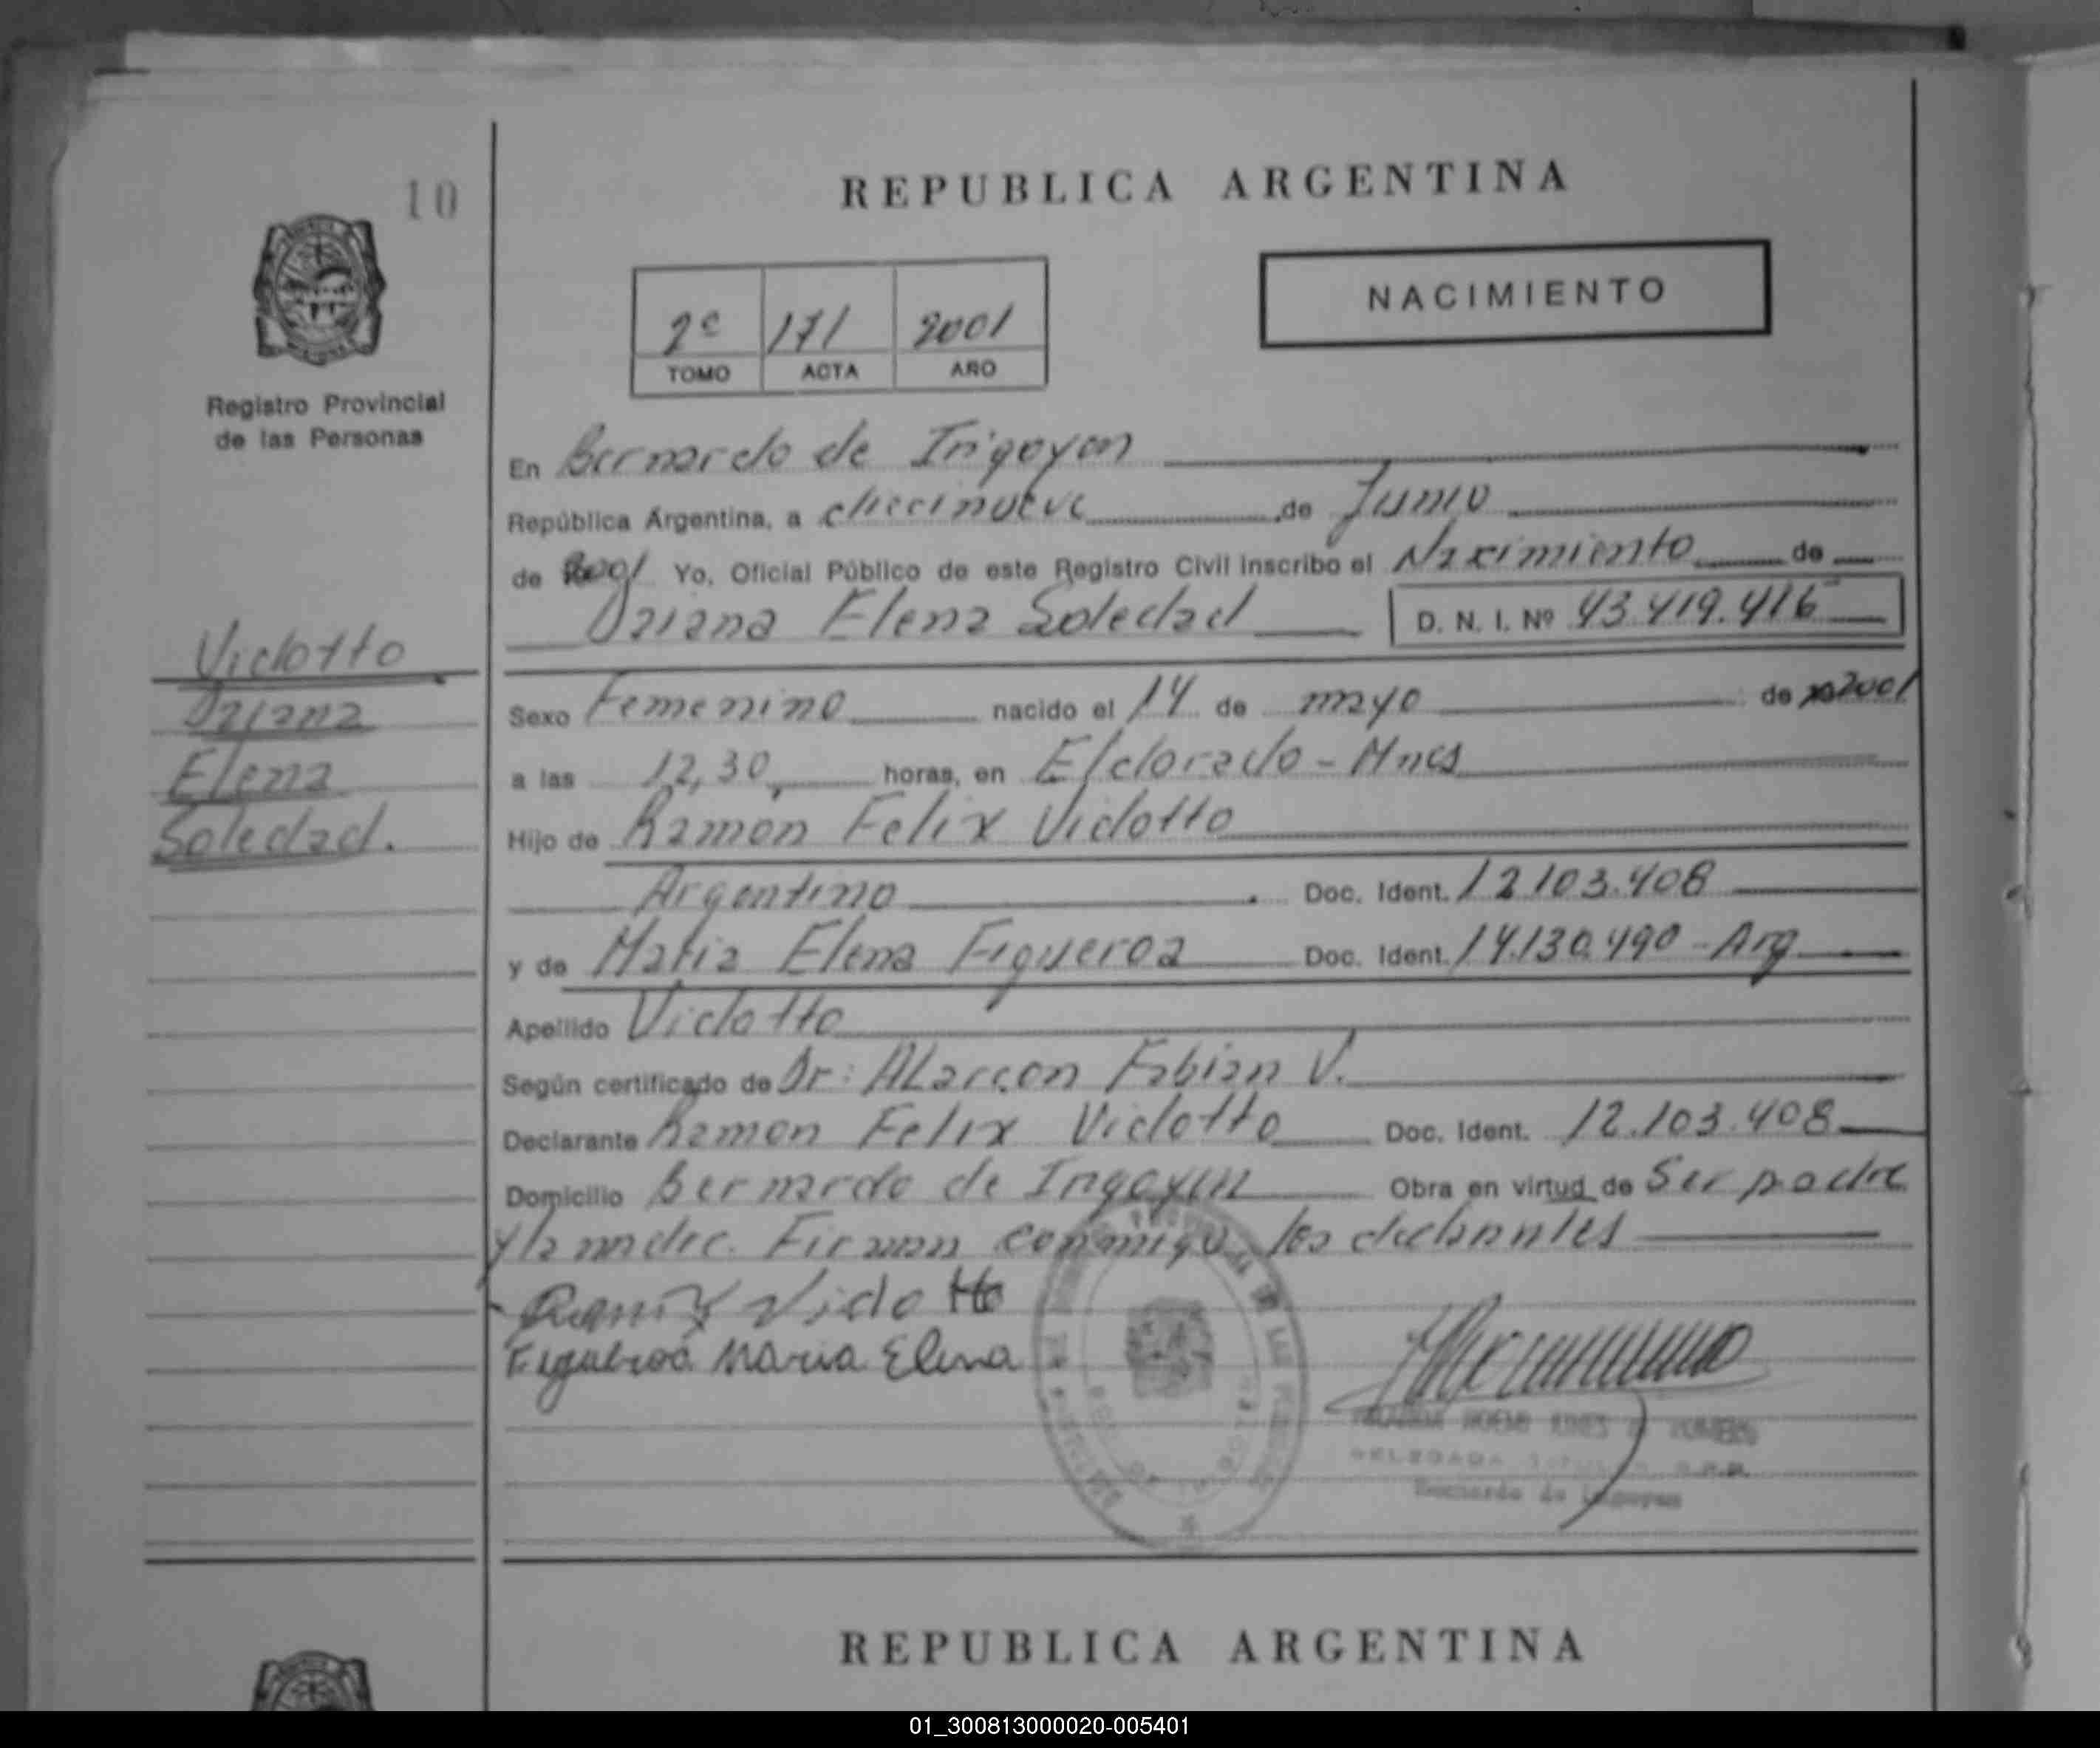 10
REPUBLICA ARGENTINA
NACIMIENTO
2º 171 2001
TOMO ACTA AÑO
Registro Provincial
de las Personas
En Bernardo de Irigoyen
República Argentina, a diecinueve de Junio
de 2001 Yo, Oficial Público de este Registro Civil inscribo el Nacimiento de
Daiana Elena Soledad D. N. I. Nº 43.419.416
Vidotto
Daiana
Elena
Soledad.
Sexo Femenino nacido el 14 de mayo de 2001
a las 12,30 horas, en Eldorado - Mnes
Hijo de Ramon Felix Vidotto
Argentino Doc. Ident. 12.103.408
y de Maria Elena Figueroa Doc. Ident. 14.130.490 - Arg
Apellido Vidotto
Según certificado de Dr: ALarcon Fabian V.
Declarante Ramon Felix Vidotto Doc. Ident. 12.103.408
Domicilio Bernardo de Irigoyen Obra en virtud de Ser padre
y la madre. Firman conmigo los
Vidotto
Figueroa Maria Elena
Bernardo de Irigoyen
REPUBLICA ARGENTINA
01_300813000020-005401